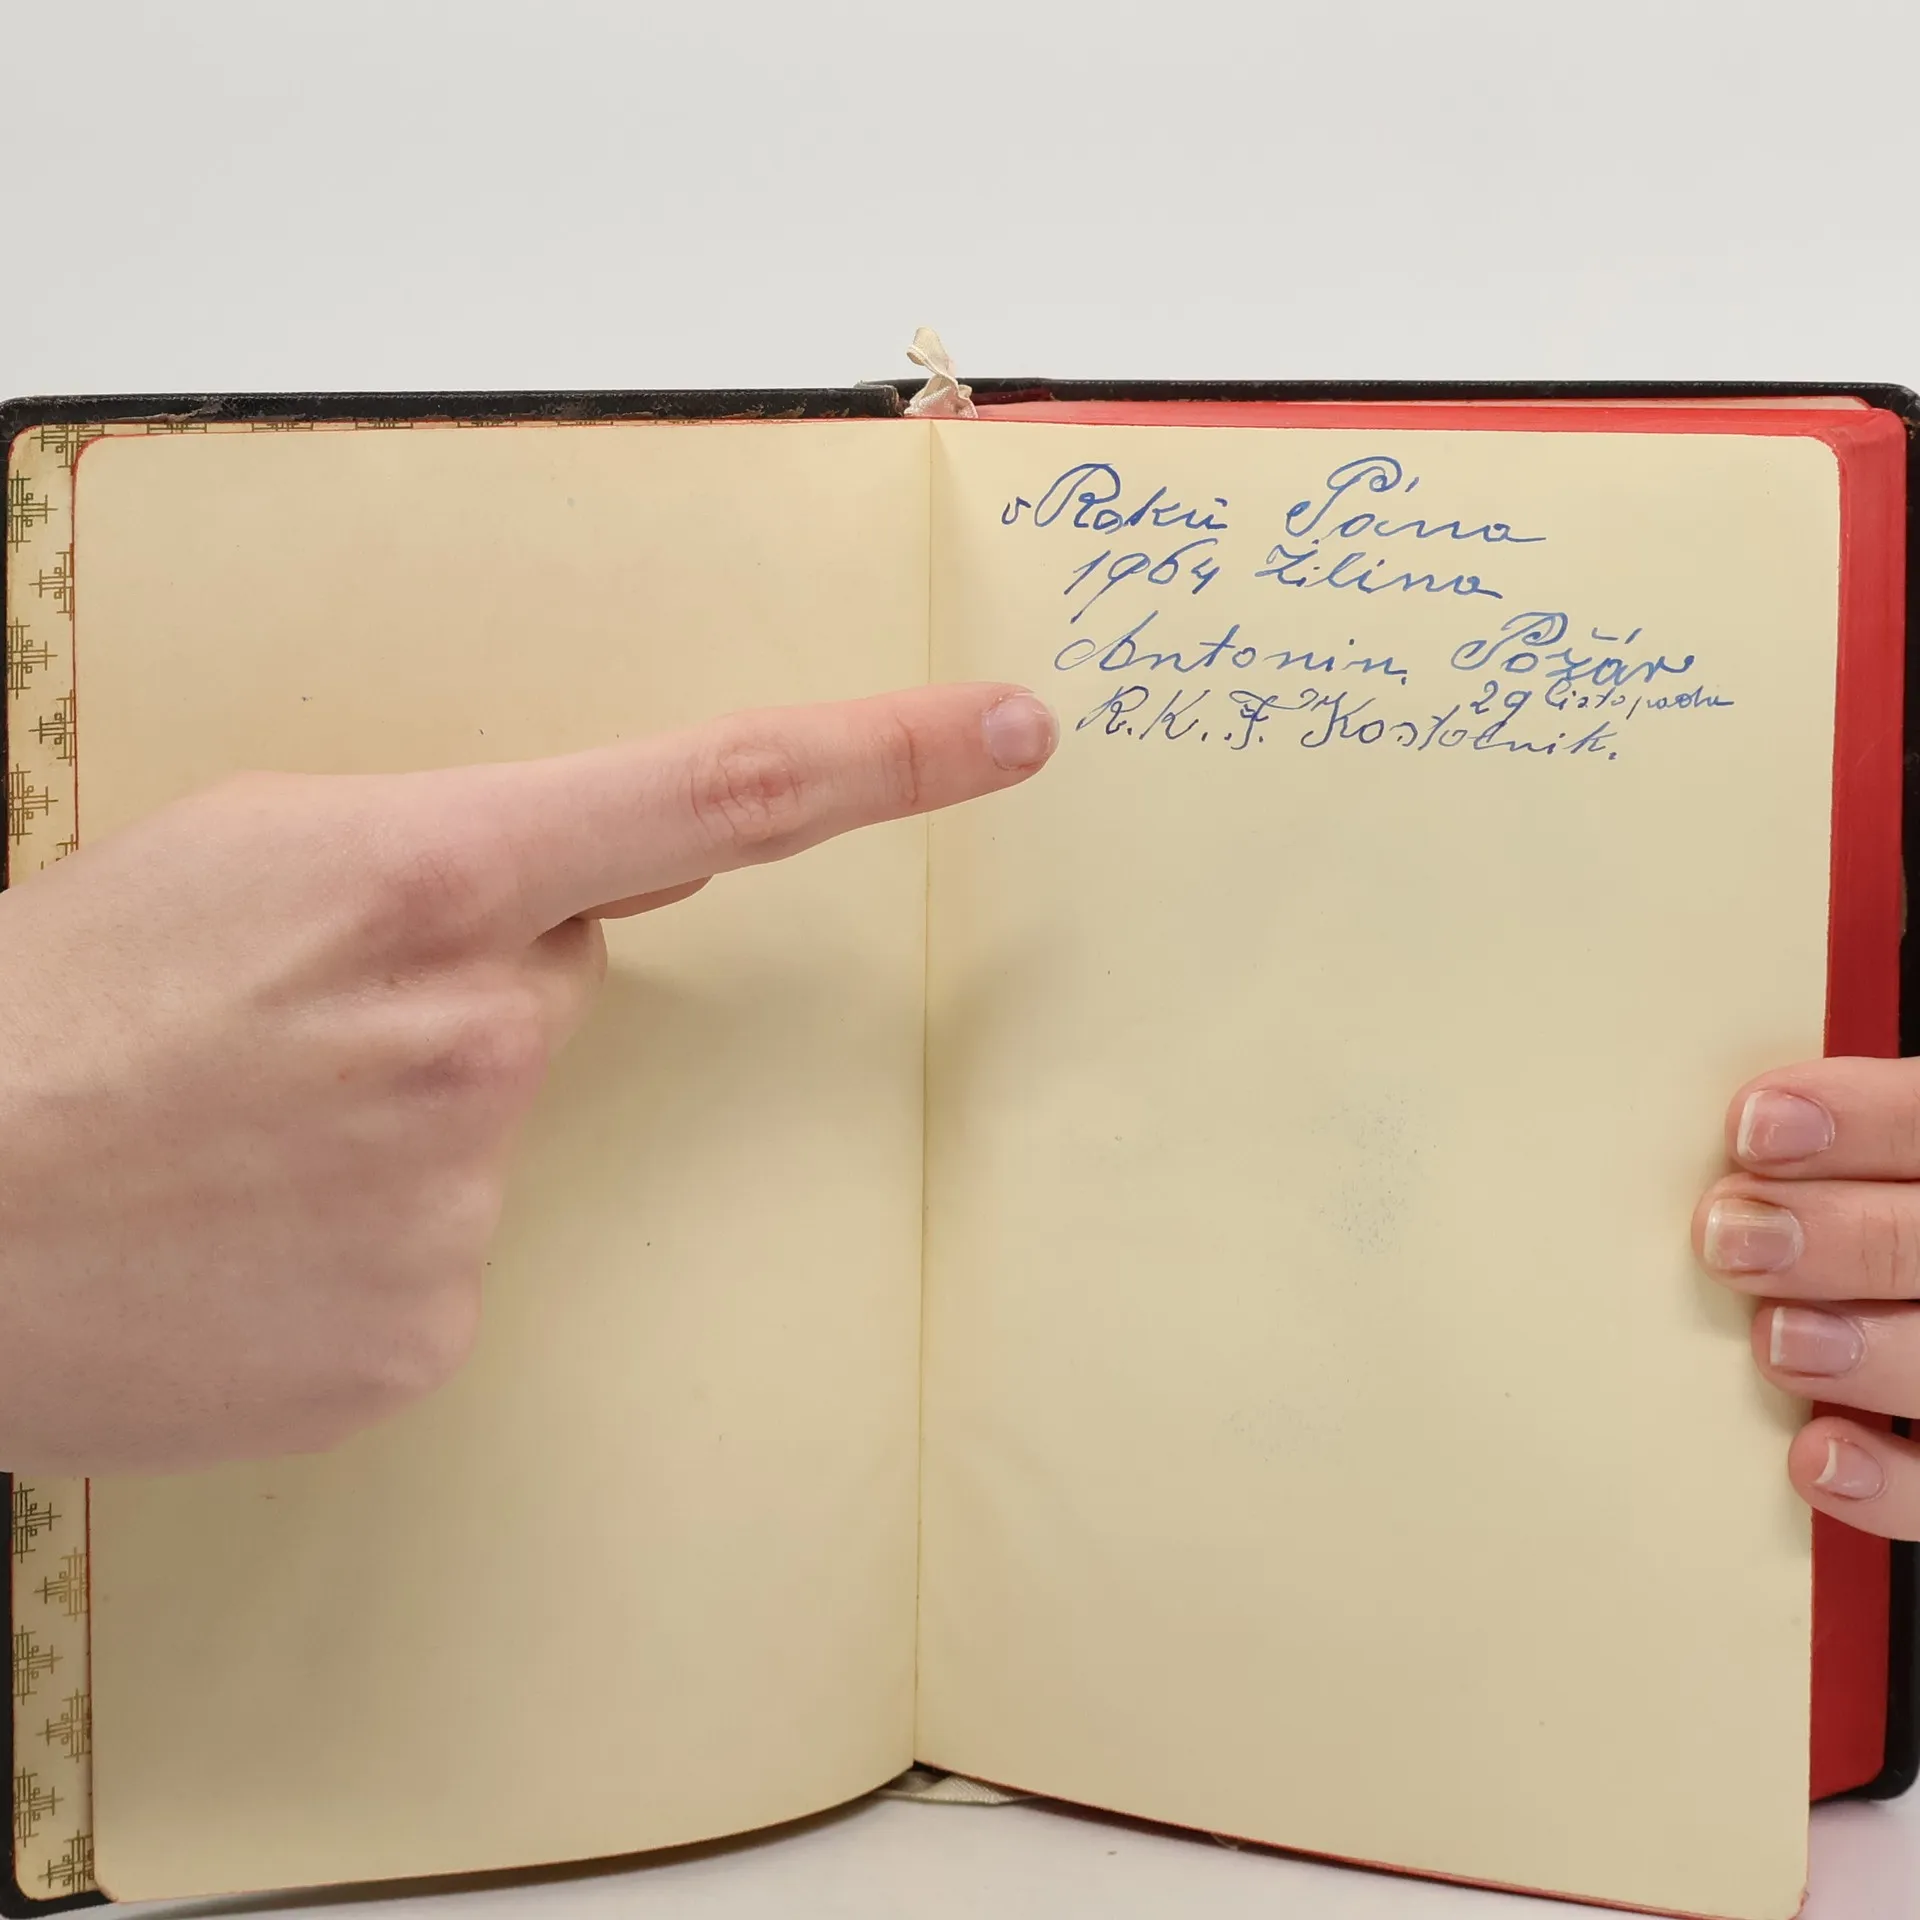 v Roků Pána
1964 Žilina
Antonin. Požár
29 listopadu
R. K. F. Kostolnik.